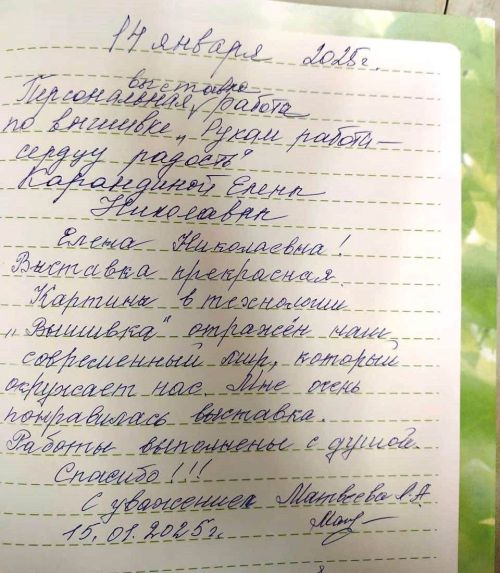 14 января 2025г.
выставка
Персональная работа
по вышивке „Рукам работа —
сердцу радость"
Карандиной Елены
Николаевны
Елена Николаевна!
Выставка прекрасная.
Картины в технологии
„Вышивка" отражён наш
современный мир, который
окружает нас. Мне очень
понравилась выставка.
Работы выполнены с душой.
Спасибо!!!
С уважением Матвеева Л.А
15.01.2025г.